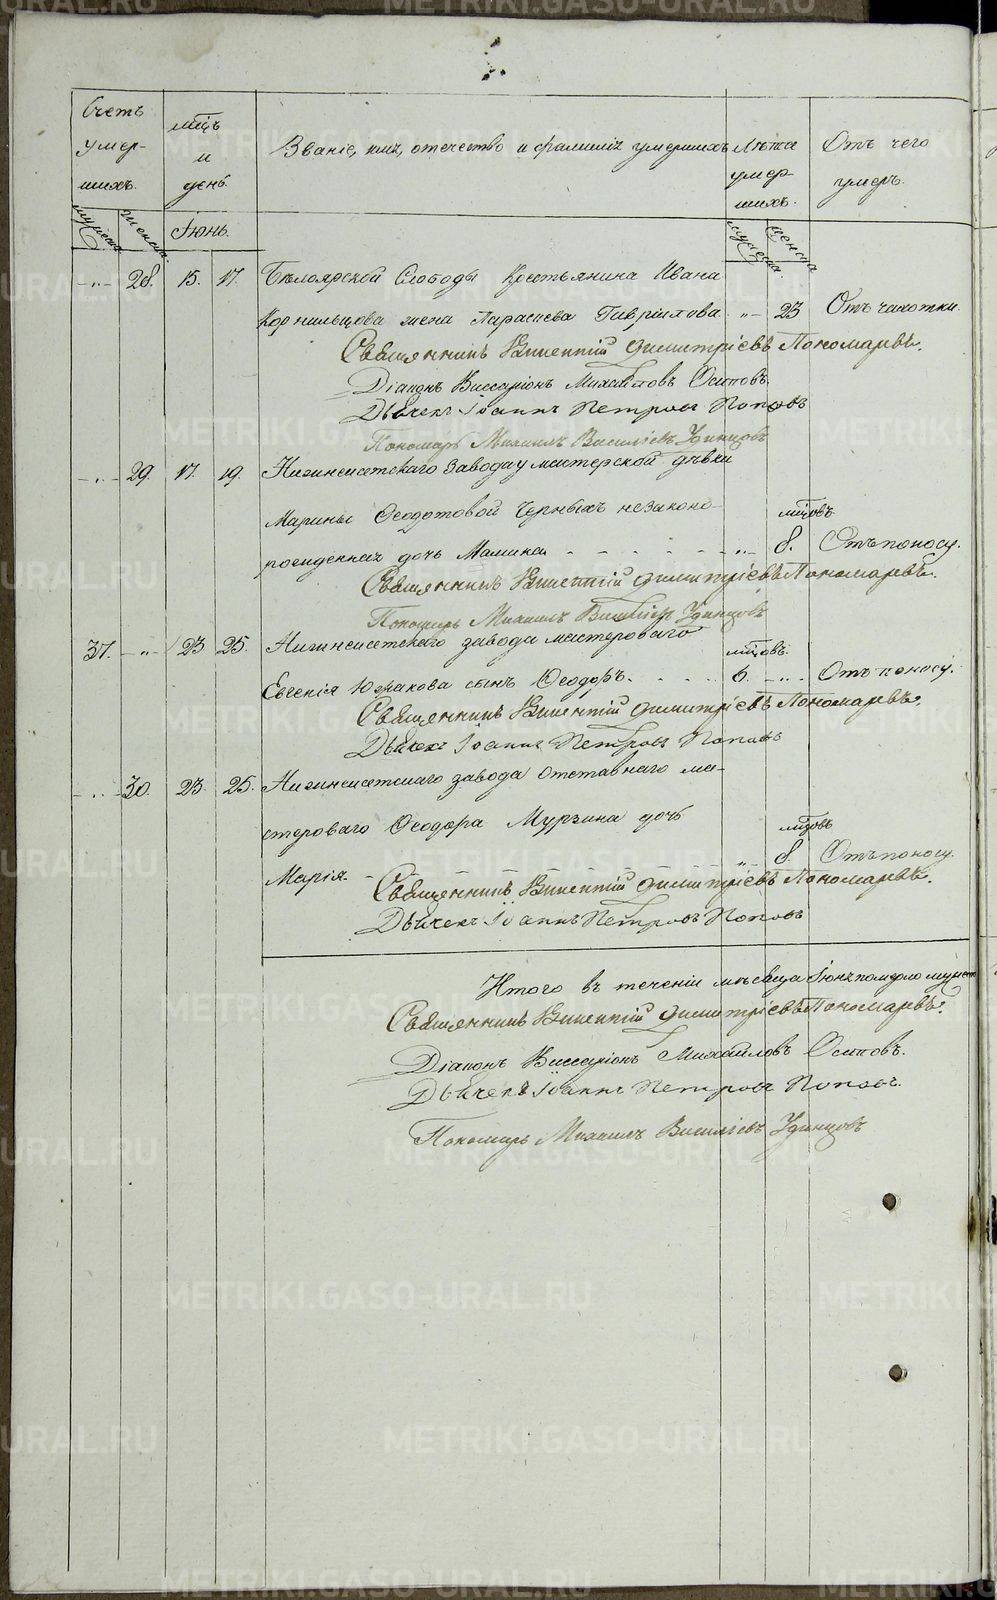 Счетъ умер-шихъ.
мѣсць и день.
Званіе, имя, отечество и фамилія умершихъ
Лѣта умер-шихъ.
Отъ чего умеръ.
мужеска
женска
Іюнь.
мужеска
женска
-„- 28. 15. 17. Бѣлоярской Слободы Крестьянина Ивана
Корнильцова жена Параскева Гавріилова -„- 23 Отъ чахотки.
Священникъ Викентій Димитріевъ Пономаревъ.
Діаконъ Виссаріонъ Михайловъ Осиповъ.
Дьячекъ Іоаннъ Петровъ Поповъ
Пономарь Михаилъ Василіевъ Удинцовъ
-„- 29. 17. 19. Нижнеисетскаго Завода у мастерской дѣвки
Марины Ѳеодотовой Черныхъ незаконо- мѣсцовъ
рожденная дочь -„- 8. Отъ поносу.
Священникъ Викентій Димитріевъ Пономаревъ.
Пономарь Михаилъ Василіевъ Удинцовъ
37. -„- 23 25. Нижнеисетскаго завода мастероваго мѣсцовъ.
Евгенія сынъ Ѳеодоръ. 6. -„- Отъ поносу.
Священникъ Викентій Димитріевъ Пономаревъ.
Дьячекъ Іоаннъ Петровъ Поповъ
-„- 30. 23. 25. Нижнеисетскаго завода отставнаго ма-
стероваго Ѳеодора Мурзина дочь мѣсцовъ
Марія. -„- 8. Отъ поносу.
Священникъ Викентій Димитріевъ Пономаревъ.
Дьячекъ Іоаннъ Петровъ Поповъ
Итого въ теченіи мѣсяца Іюня померло мужеск
Священникъ Викентій Димитріевъ Пономаревъ.
Діаконъ Виссаріонъ Михайловъ Осиповъ.
Дьячекъ Іоаннъ Петровъ Поповъ.
Пономарь Михаилъ Василіевъ Удинцовъ
METRIKI.GASO-URAL.RU